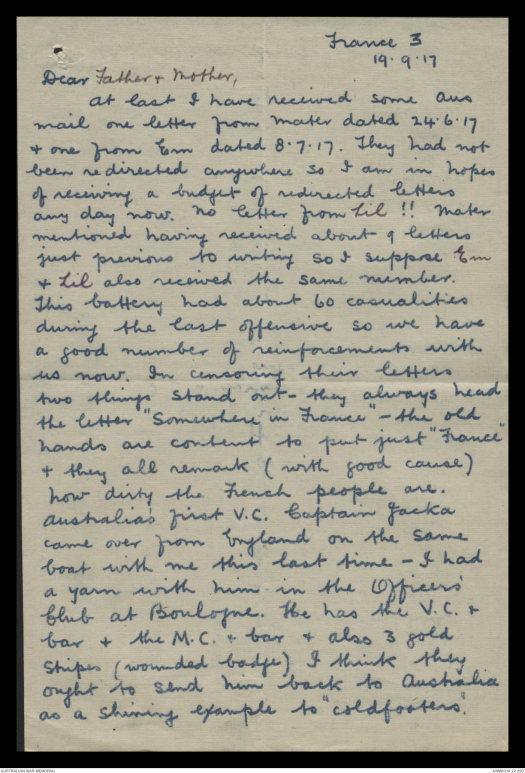 France 3
19.9.17
Dear Father & Mother,
At last I have received some Aus
mail one letter from Mater dated 24.6.17
& one from Em dated 8.7.17. They had not
been redirected anywhere so I am in hopes
of receiving a budget of redirected letters
any day now. No letter from Lil !! Mater
mentioned having received about 9 letters
just previous to writing so I suppose Em
& Lil also received the same number.
This battery had about 60 casualities
during the last offensive so we have
a good number of reinforcements with
us now. In censoring their letters
two things stand out - they always head
the letter "Somewhere in France" - the old
hands are content to put just "France"
& they all remark (with good cause)
how dirty the French people are.
Australia's first V.C. Captain Jacka
came over from England on the same
boat with me this last time - I had
a yarn with him in the Officers'
Club at Boulogne. He has the V.C. &
bar & the M.C. & bar & also 3 gold
stripes (wounded badge) I think they
ought to send him back to Australia
as a shining example to "coldfooters".
AUSTRALIAN WAR MEMORIAL